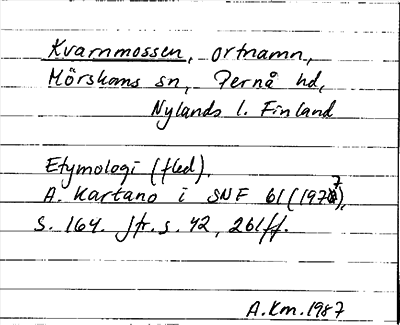 Kvarnmossen, ortnamn,
Mörskoms sn, Pernå hd,
Nylands l. Finland
Etymologi (fled).
A. Kartano i SNF 61 (1977),
s. 164. jfr. s. 42, 261ff.
A.Km.1987